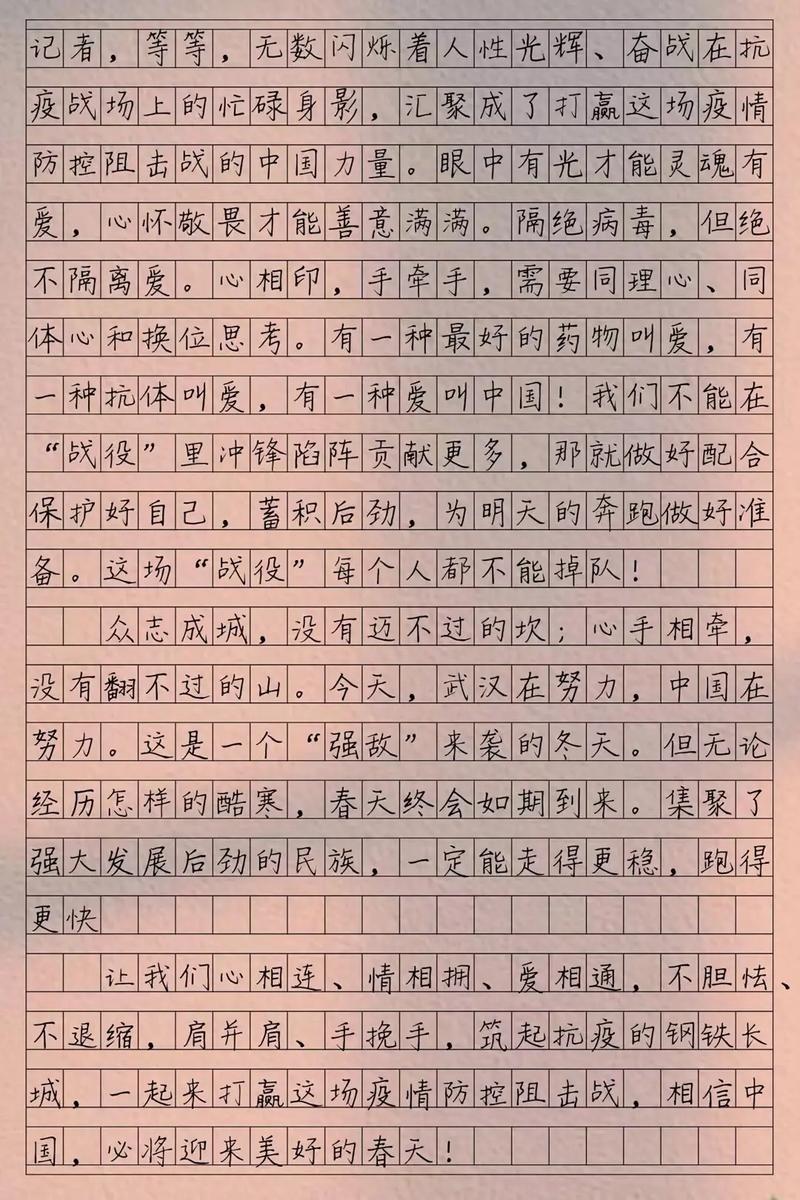 记者，等等，无数闪烁着人性光辉、奋战在抗
疫战场上的忙碌身影，汇聚成了打赢这场疫情
防控阻击战的中国力量。眼中有光才能灵魂有
爱，心怀敬畏才能善意满满。隔绝病毒，但绝
不隔离爱。心相印，手牵手，需要同理心、同
体心和换位思考。有一种最好的药物叫爱，有
一种抗体叫爱，有一种爱叫中国！我们不能在
“战役”里冲锋陷阵贡献更多，那就做好配合
保护好自己，蓄积后劲，为明天的奔跑做好准
备。这场“战役”每个人都不能掉队！
众志成城，没有迈不过的坎；心手相牵，
没有翻不过的山。今天，武汉在努力，中国在
努力。这是一个“强敌”来袭的冬天。但无论
经历怎样的酷寒，春天终会如期到来。集聚了
强大发展后劲的民族，一定能走得更稳，跑得
更快
让我们心相连、情相拥、爱相通，不胆怯、
不退缩，肩并肩、手挽手，筑起抗疫的钢铁长
城，一起来打赢这场疫情防控阻击战，相信中
国，必将迎来美好的春天！